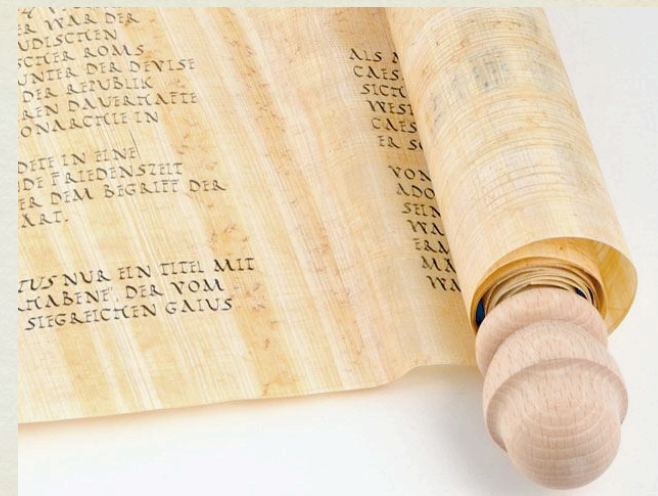 ER WAR DER
UDISCHEN
SCHER ROMS
UNTER DER DEVISE
DER REPUBLIK
REN DAUERHAFTE
ONARCHIE IN
DETE IN EINE
DE FRIEDENSZEIT
ER DEM BEGRIFF DER
ART.
TUS NUR EIN TITEL MIT
RHABENE", DER VOM
SIEGREICHEN GAIUS
ALS
CAES
SICH
WEST
CAES
ER S
VON
ADO
SEIN
WA
ERM
MA
WA